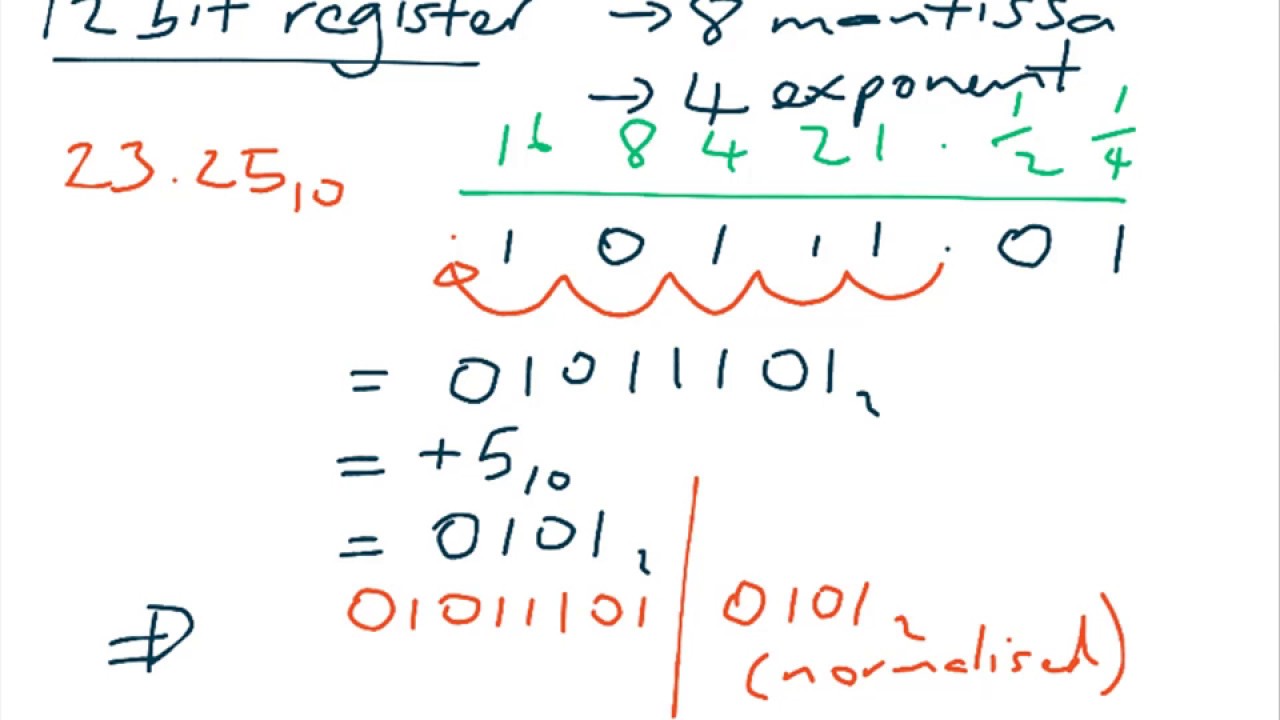 12 bit register → 8 mantissa
→ 4 exponent
23.25₁₀
16 8 4 2 1 . 1/2 1/4
. 1 0 1 1 1 . 0 1
= 01011101₂
= +5₁₀
= 0101₂
⇒ 01011101 | 0101₂
(normalised)